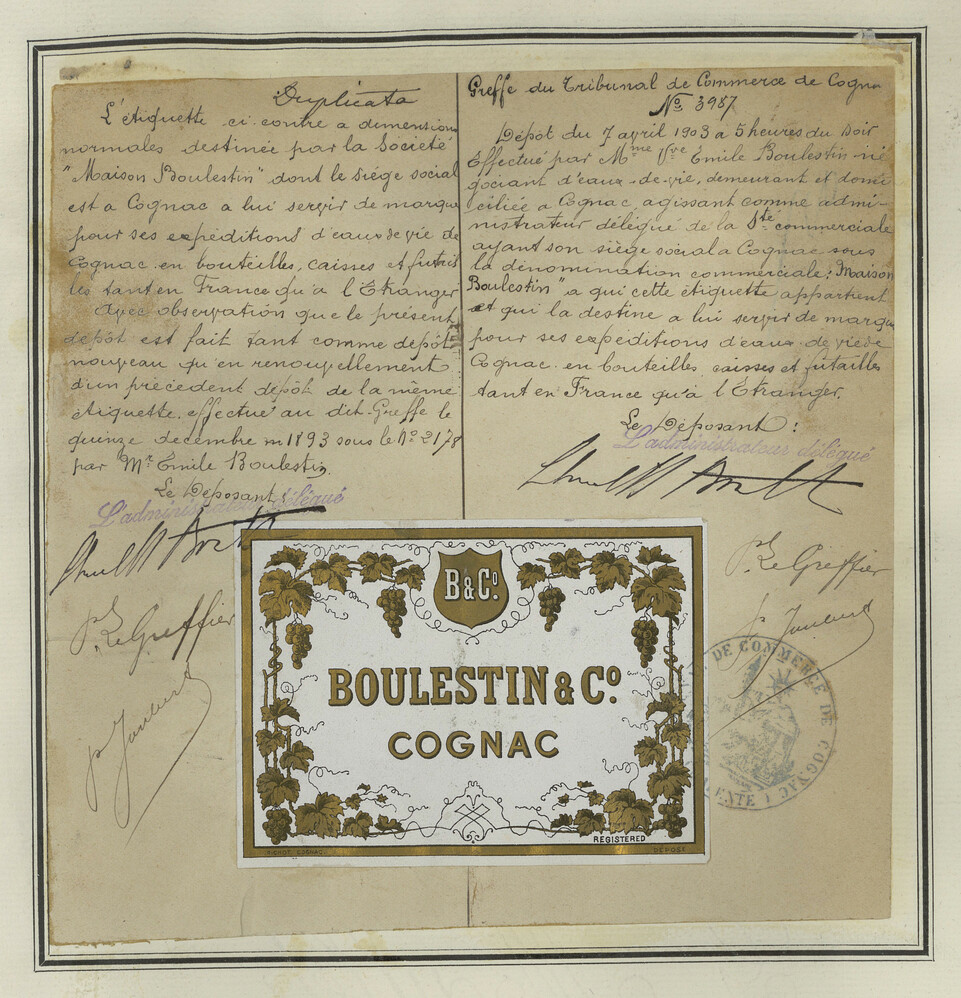 Duplicata
L'étiquette ci-contre a dimensions
normales destinée par la Société
"Maison Boulestin" dont le siège social
est a Cognac a lui servir de marque
pour ses expéditions d'eaux de vie de
Cognac en bouteilles, caisses et futail
les tant en France qu'a l'Etranger
Avec observation que le présent
dépôt est fait tant comme dépôt
nouveau qu'en renouvellement
d'un précédent dépôt de la même
étiquette effectué au dit Greffe le
quinze décembre 1893 sous le No 2178
par Mr Emile Boulestin.
Le Déposant:
L'administrateur délégué
p. Le Greffier
Greffe du Tribunal de Commerce de Cognac
No 3987
Dépôt du 7 avril 1903 a 5 heures du soir
Effectué par Mme Vve Emile Boulestin né
gociant d'eaux-de-vie, demeurant et domi
ciliée a Cognac, agissant comme admi-
nistrateur délégué de la Ste commerciale
ayant son siège social a Cognac sous
la dénomination commerciale: "Maison
Boulestin" a qui cette étiquette appartient
et qui la destine a lui servir de marque
pour ses expéditions d'eaux de vie de
Cognac en bouteilles caisses et futailles
tant en France qu'à l'Etranger.
Le Déposant:
L'administrateur délégué
p. Le Greffier
DE COMMERCE DE COGNAC
B & Co.
BOULESTIN & Co.
COGNAC
REGISTERED
DÉPOSÉ